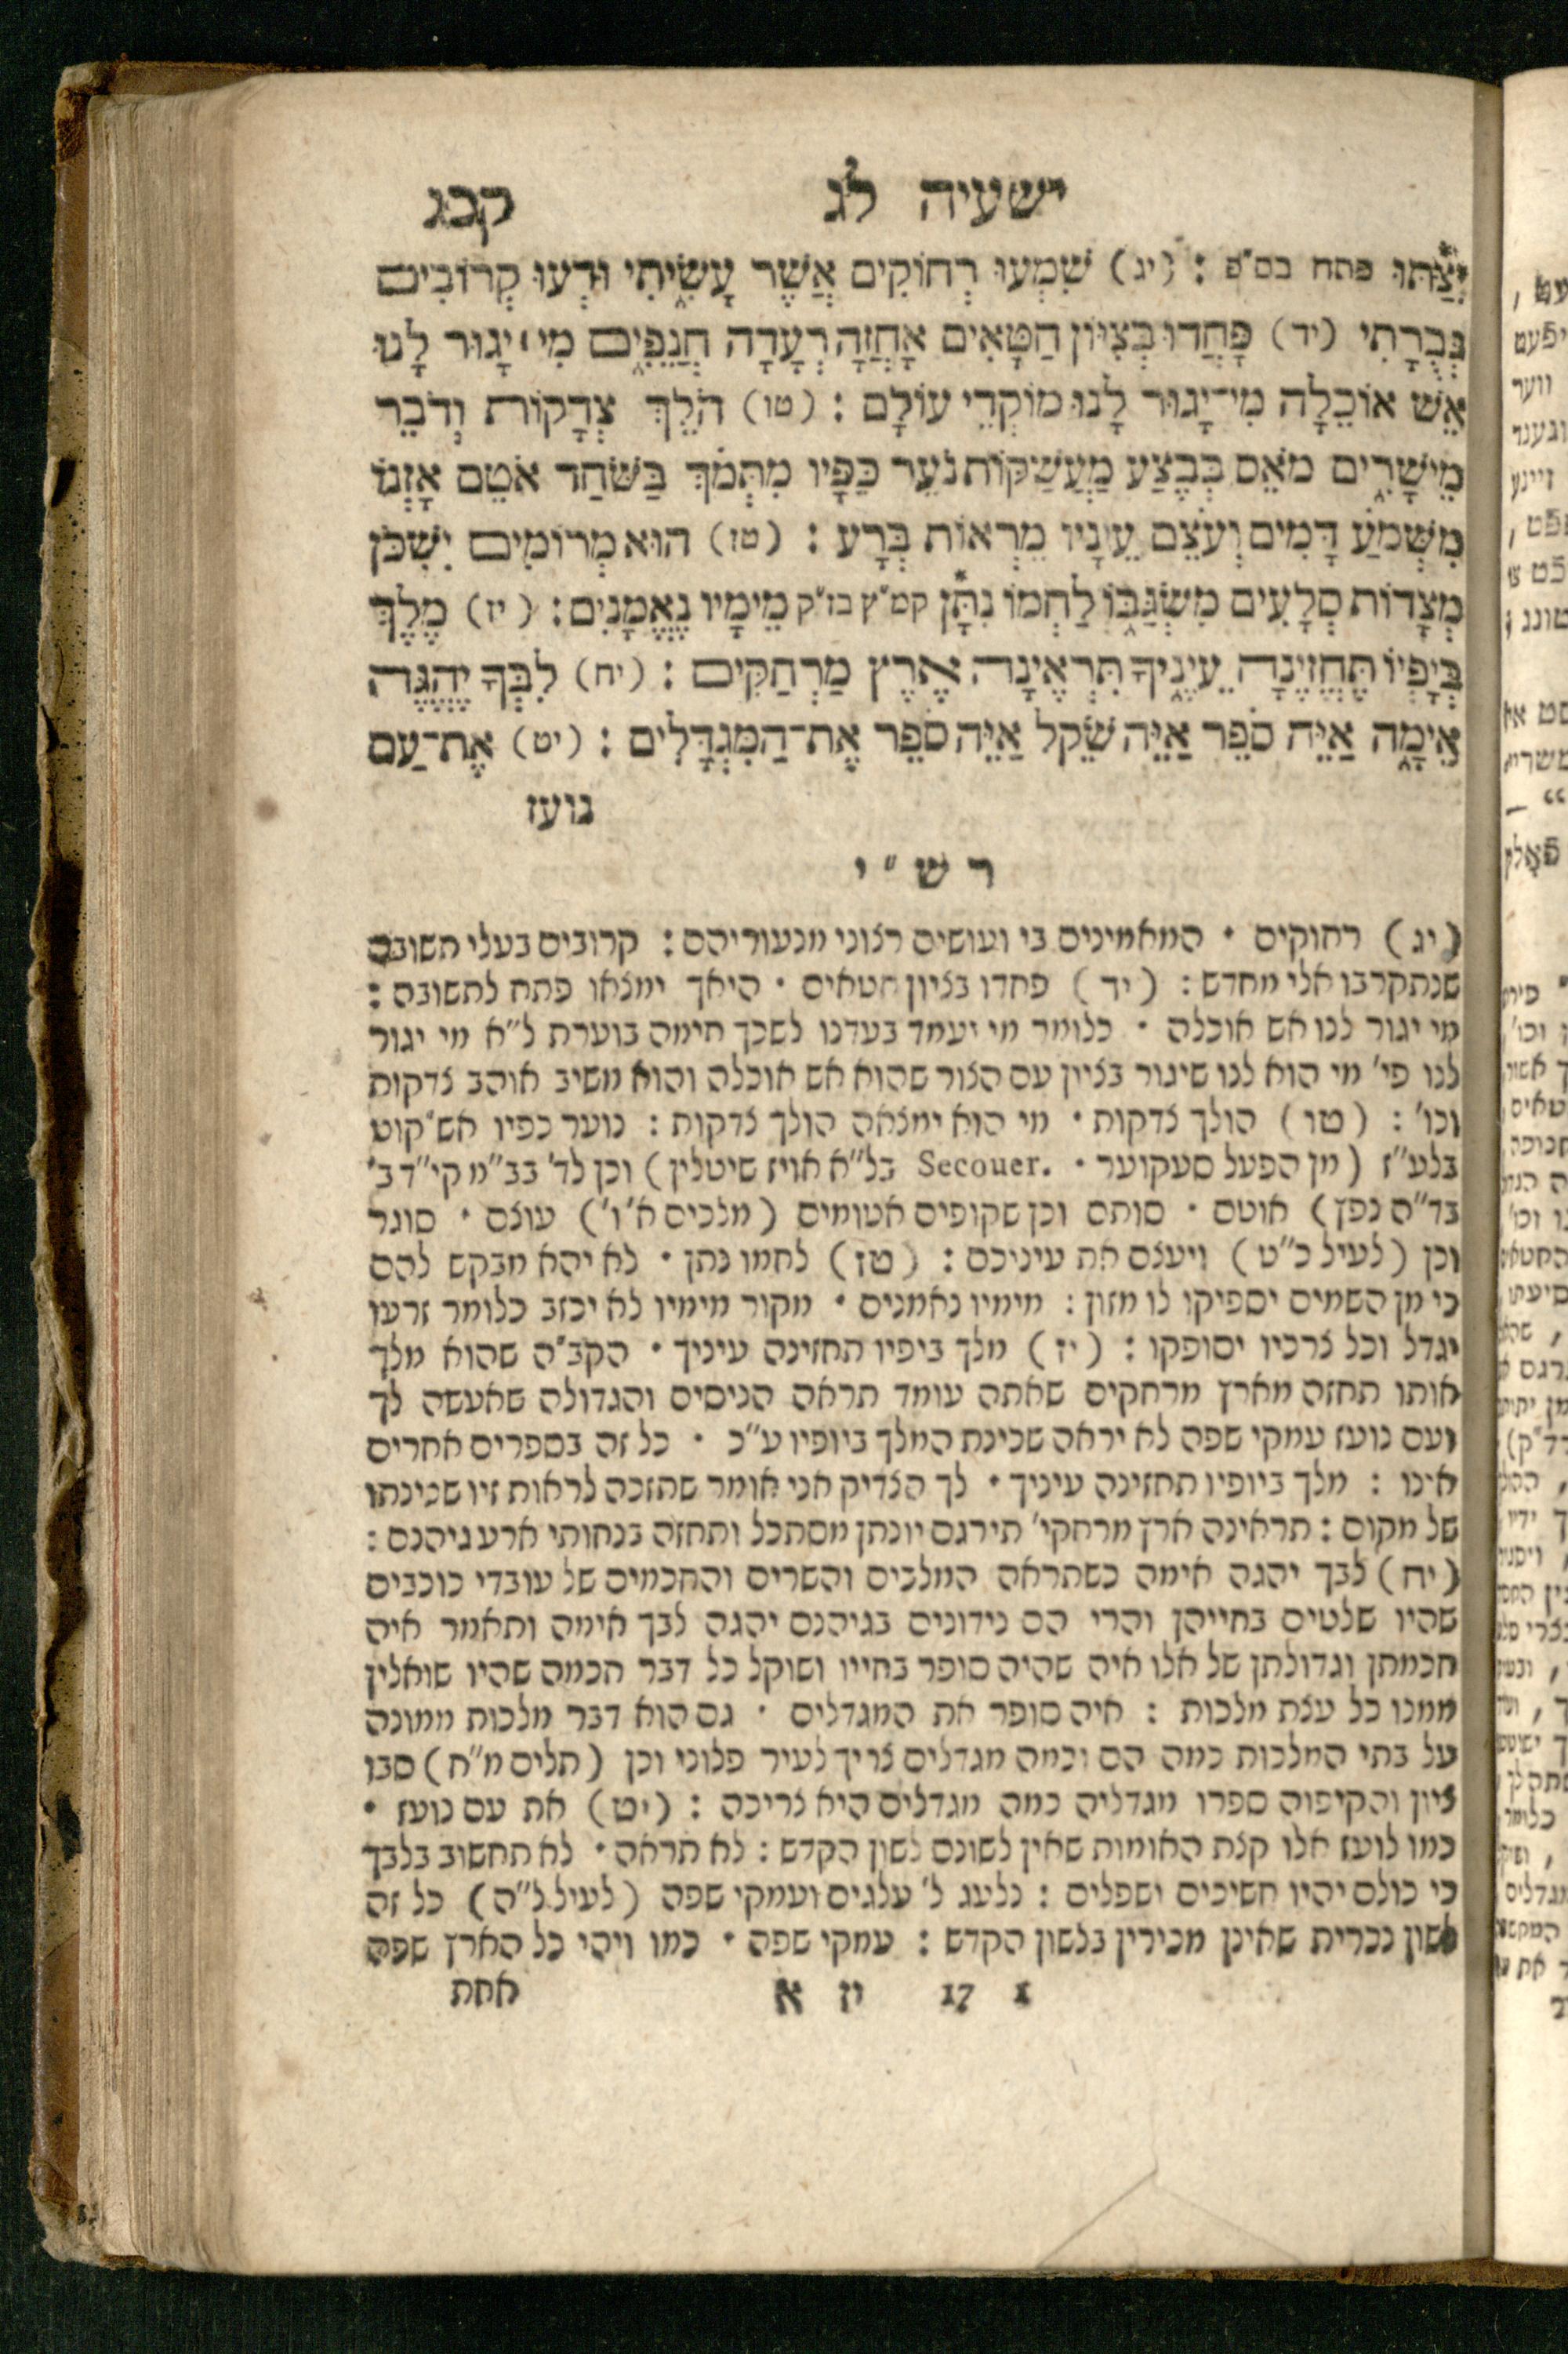 ישעיה לג קכג
יִצַּתּוּ פתח בס״פ : (יג) שִׁמְעוּ רְחוֹקִים אֲשֶׁר עָשִׂיתִי וּדְעוּ קְרוֹבִים
גְּבֻרָתִי (יד) פָּחֲדוּ בְצִיּוֹן חַטָּאִים אָחֲזָה רְעָדָה חֲנֵפִים מִי יָגוּר לָנוּ
אֵשׁ אוֹכֵלָה מִי־יָגוּר לָנוּ מוֹקְדֵי עוֹלָם : (טו) הֹלֵךְ צְדָקוֹת וְדֹבֵר
מֵישָׁרִים מֹאֵס בְּבֶצַע מַעֲשַׁקּוֹת נֹעֵר כַּפָּיו מִתְּמֹךְ בַּשֹּׁחַד אֹטֵם אָזְנוֹ
מִשְּׁמֹעַ דָּמִים וְעֹצֵם עֵינָיו מֵרְאוֹת בְּרָע : (טז) הוּא מְרוֹמִים יִשְׁכֹּן
מְצָדוֹת סְלָעִים מִשְׂגַּבּוֹ לַחְמוֹ נִתָּן קמ״ץ בז״ק מֵימָיו נֶאֱמָנִים : (יז) מֶלֶךְ
בְּיָפְיוֹ תֶּחֱזֶינָה עֵינֶיךָ תִּרְאֶינָה אֶרֶץ מַרְחַקִּים : (יח) לִבְּךָ יֶהְגֶּה
אֵימָה אַיֵּה סֹפֵר אַיֵּה שֹׁקֵל אַיֵּה סֹפֵר אֶת־הַמִּגְדָּלִים : (יט) אֶת־עַם
נועז
רש״י
(יג) רחוקים • המאמינים בי ועושים רצוני מנעוריהם : קרובים בעלי תשובה
שנתקרבו אלי מחדש : (יד) פחדו בציון חטאים • היאך ימצאו פתח לתשובה :
מי יגור לנו אש אוכלה • כלומר מי יעמד בעדנו לשכך חימה בוערת ל״א מי יגור
לנו פי׳ מי הוא לנו שיגור בציון עם הצור שהוא אש אוכלה והוא משיב אוהב צדקות
וכו׳ : (טו) הולך צדקות • מי הוא ימצאה הולך צדקות : נוער כפיו אש״קוט
בלע״ז (מן הפעל סעקוער • Secouer. בל״א אויז שיטלין) וכן לד׳ בב״מ קי״ד ב׳
בד״ה נפץ) אוטם • סותם וכן שקופים אטומים (מלכים א׳ ו׳) עוצם • סוגר
וכן (לעיל כ״ט) ויעצם את עיניכם : (טז) לחמו נתן • לא יהא מבקש להם
כי מן השמים יספיקו לו מזון : מימיו נאמנים • מקור מימיו לא יכזב כלומר זרעו
יגדל וכל צרכיו יסופקו : (יז) מלך ביפיו תחזינה עיניך • הקב״ה שהוא מלך
אותו תחזה מארץ מרחקים שאתה עומד תראה הניסים והגדולה שאעשה לך
ועם נועז עמקי שפה לא יראה שכינת המלך ביופיו ע״כ • כל זה בספרים אחרים
אינו : מלך ביופיו תחזינה עיניך • לך הצדיק אני אומר שתזכה לראות זיו שכינתו
של מקום : תראינה ארץ מרחקי׳ תירגם יונתן מסתכל ותחזה בנחותי ארע גיהנם :
(יח) לבך יהגה אימה כשתראה המלכים והשרים והחכמים של עובדי כוכבים
שהיו שלטים בחייהן והרי הם נידונים בגיהנם יהגה לבך אימה ותאמר איה
חכמתן וגדולתן של אלו איה שהיה סופר בחייו ושוקל כל דבר חכמה שהיו שואלין
ממנו כל עצת מלכות : איה סופר את המגדלים • גם הוא דבר מלכות ממונה
על בתי המלכות כמה הם וכמה מגדלים צריך לעיר פלוני וכן (תלים מ״ח) סבו
ציון והקיפוה ספרו מגדליה כמה מגדלים היא צריכה : (יט) את עם נועז •
כמו לועז אלו קצת האומות שאין לשונם לשון הקדש : לא תראה • לא תחשוב בלבך
כי כולם יהיו חשיכים ושפלים : נלעג ל׳ עלגים ועמקי שפה (לעיל ל״ה) כל זה
לשון נכרית שאינן מכירין בלשון הקדש : עמקי שפה • כמו ויהי כל הארץ שפה
1 17 יז א אחת